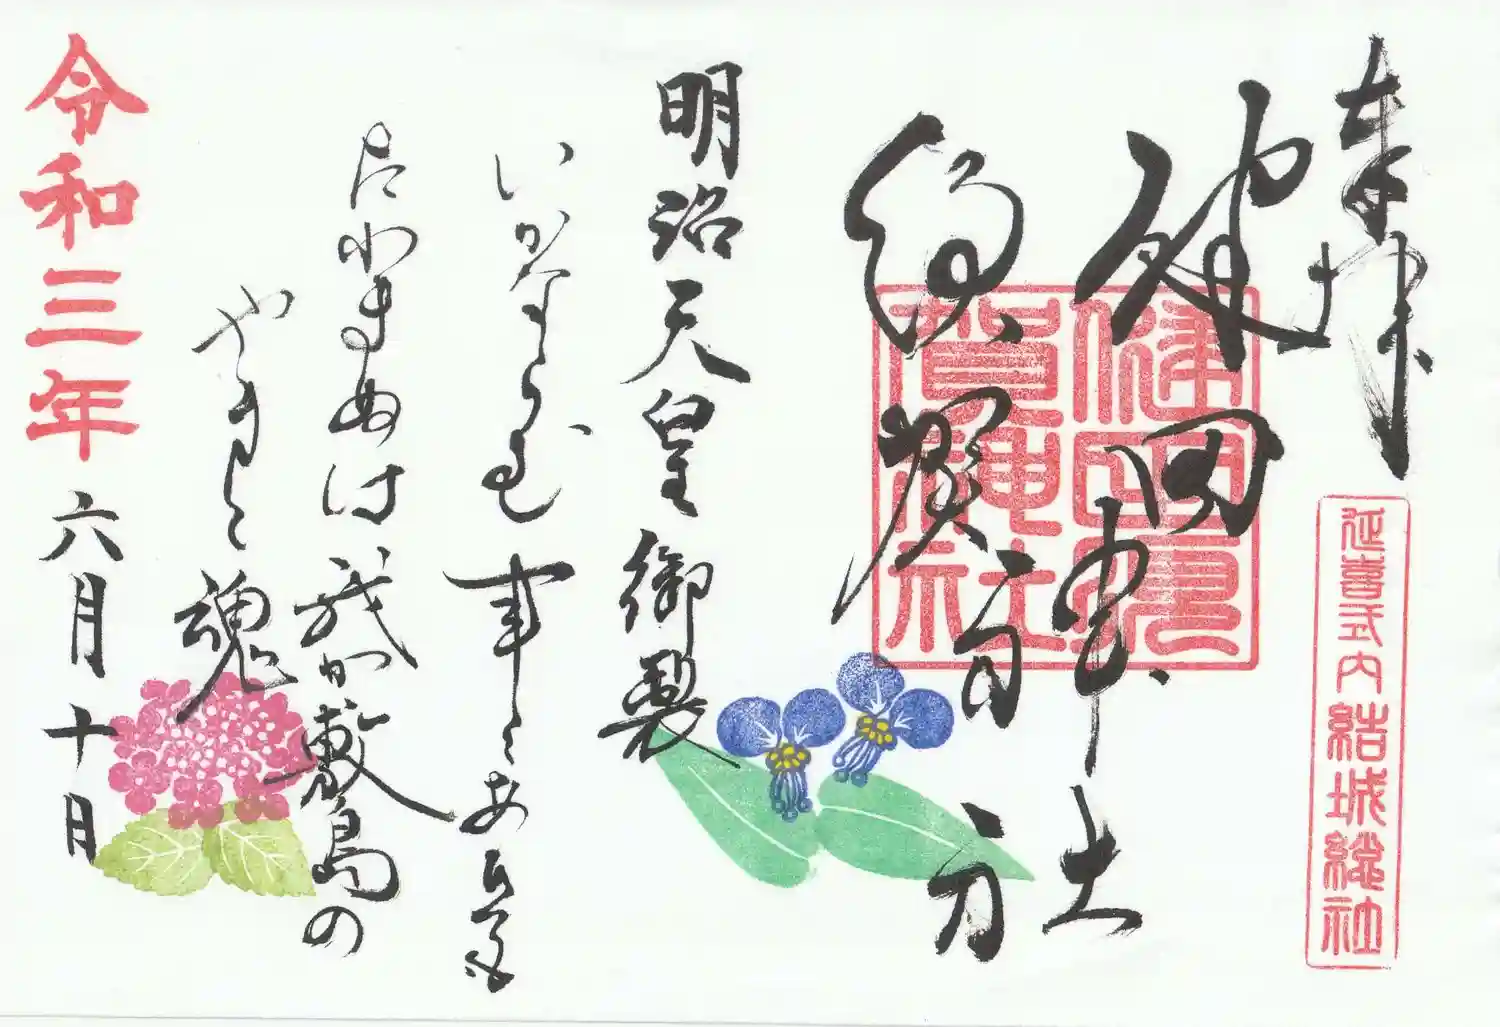 奉拝
延喜式内結城総社
健田神社
須賀神社
健田須
賀神社
明治天皇御製
いかならむ事にあひても
たわまぬは我か敷島の
やまと魂
令和三年六月十日